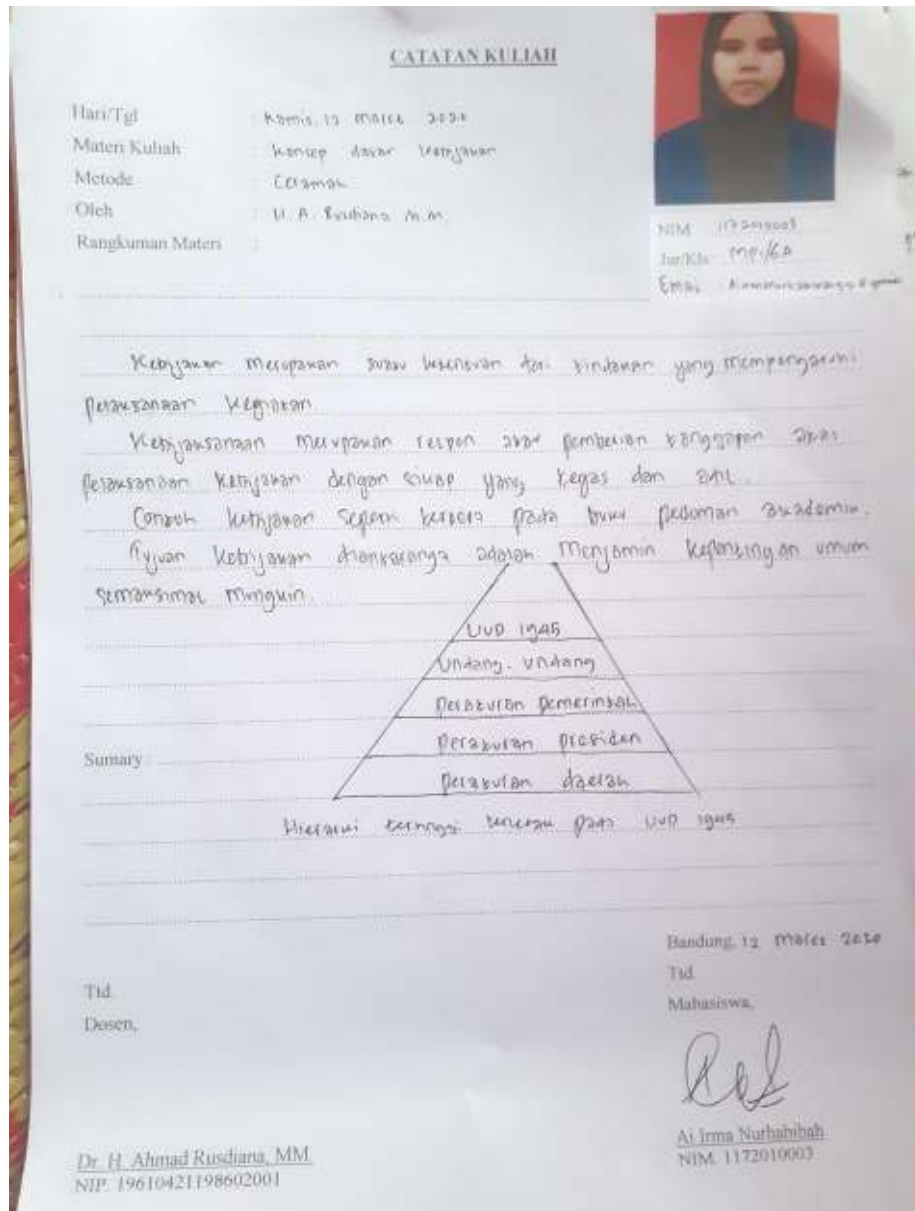 CATATAN KULIAH
Hari/Tgl : Kamis, 12 Maret 2020
Materi Kuliah : Konsep dasar kebijakan
Metode : Ceramah
Oleh : H. A. Rusdiana M.M.
Rangkuman Materi :
NIM 1172010003
Jur/Kls MPI/6A
Email
Kebijakan merupakan suatu ketentuan dari tindakan yang mempengaruhi
pelaksanaan kegiatan.
Kebijaksanaan merupakan respon atau pemberian tanggapan atas
pelaksanaan kebijakan dengan sikap yang tegas dan adil.
Contoh kebijakan seperti tertera pada buku pedoman akademik.
Tujuan kebijakan diantaranya adalah menjamin kepentingan umum
semaksimal mungkin.
UUD 1945
Undang-undang
Peraturan pemerintah
Peraturan presiden
Sumary :
Peraturan daerah
Hierarki tertinggi terletak pada UUD 1945
Bandung, 12 Maret 2020
Ttd.
Mahasiswa,
Ttd.
Dosen,
Ai Irma Nurhabibah
NIM. 1172010003
Dr. H. Ahmad Rusdiana, MM.
NIP. 19610421198602001